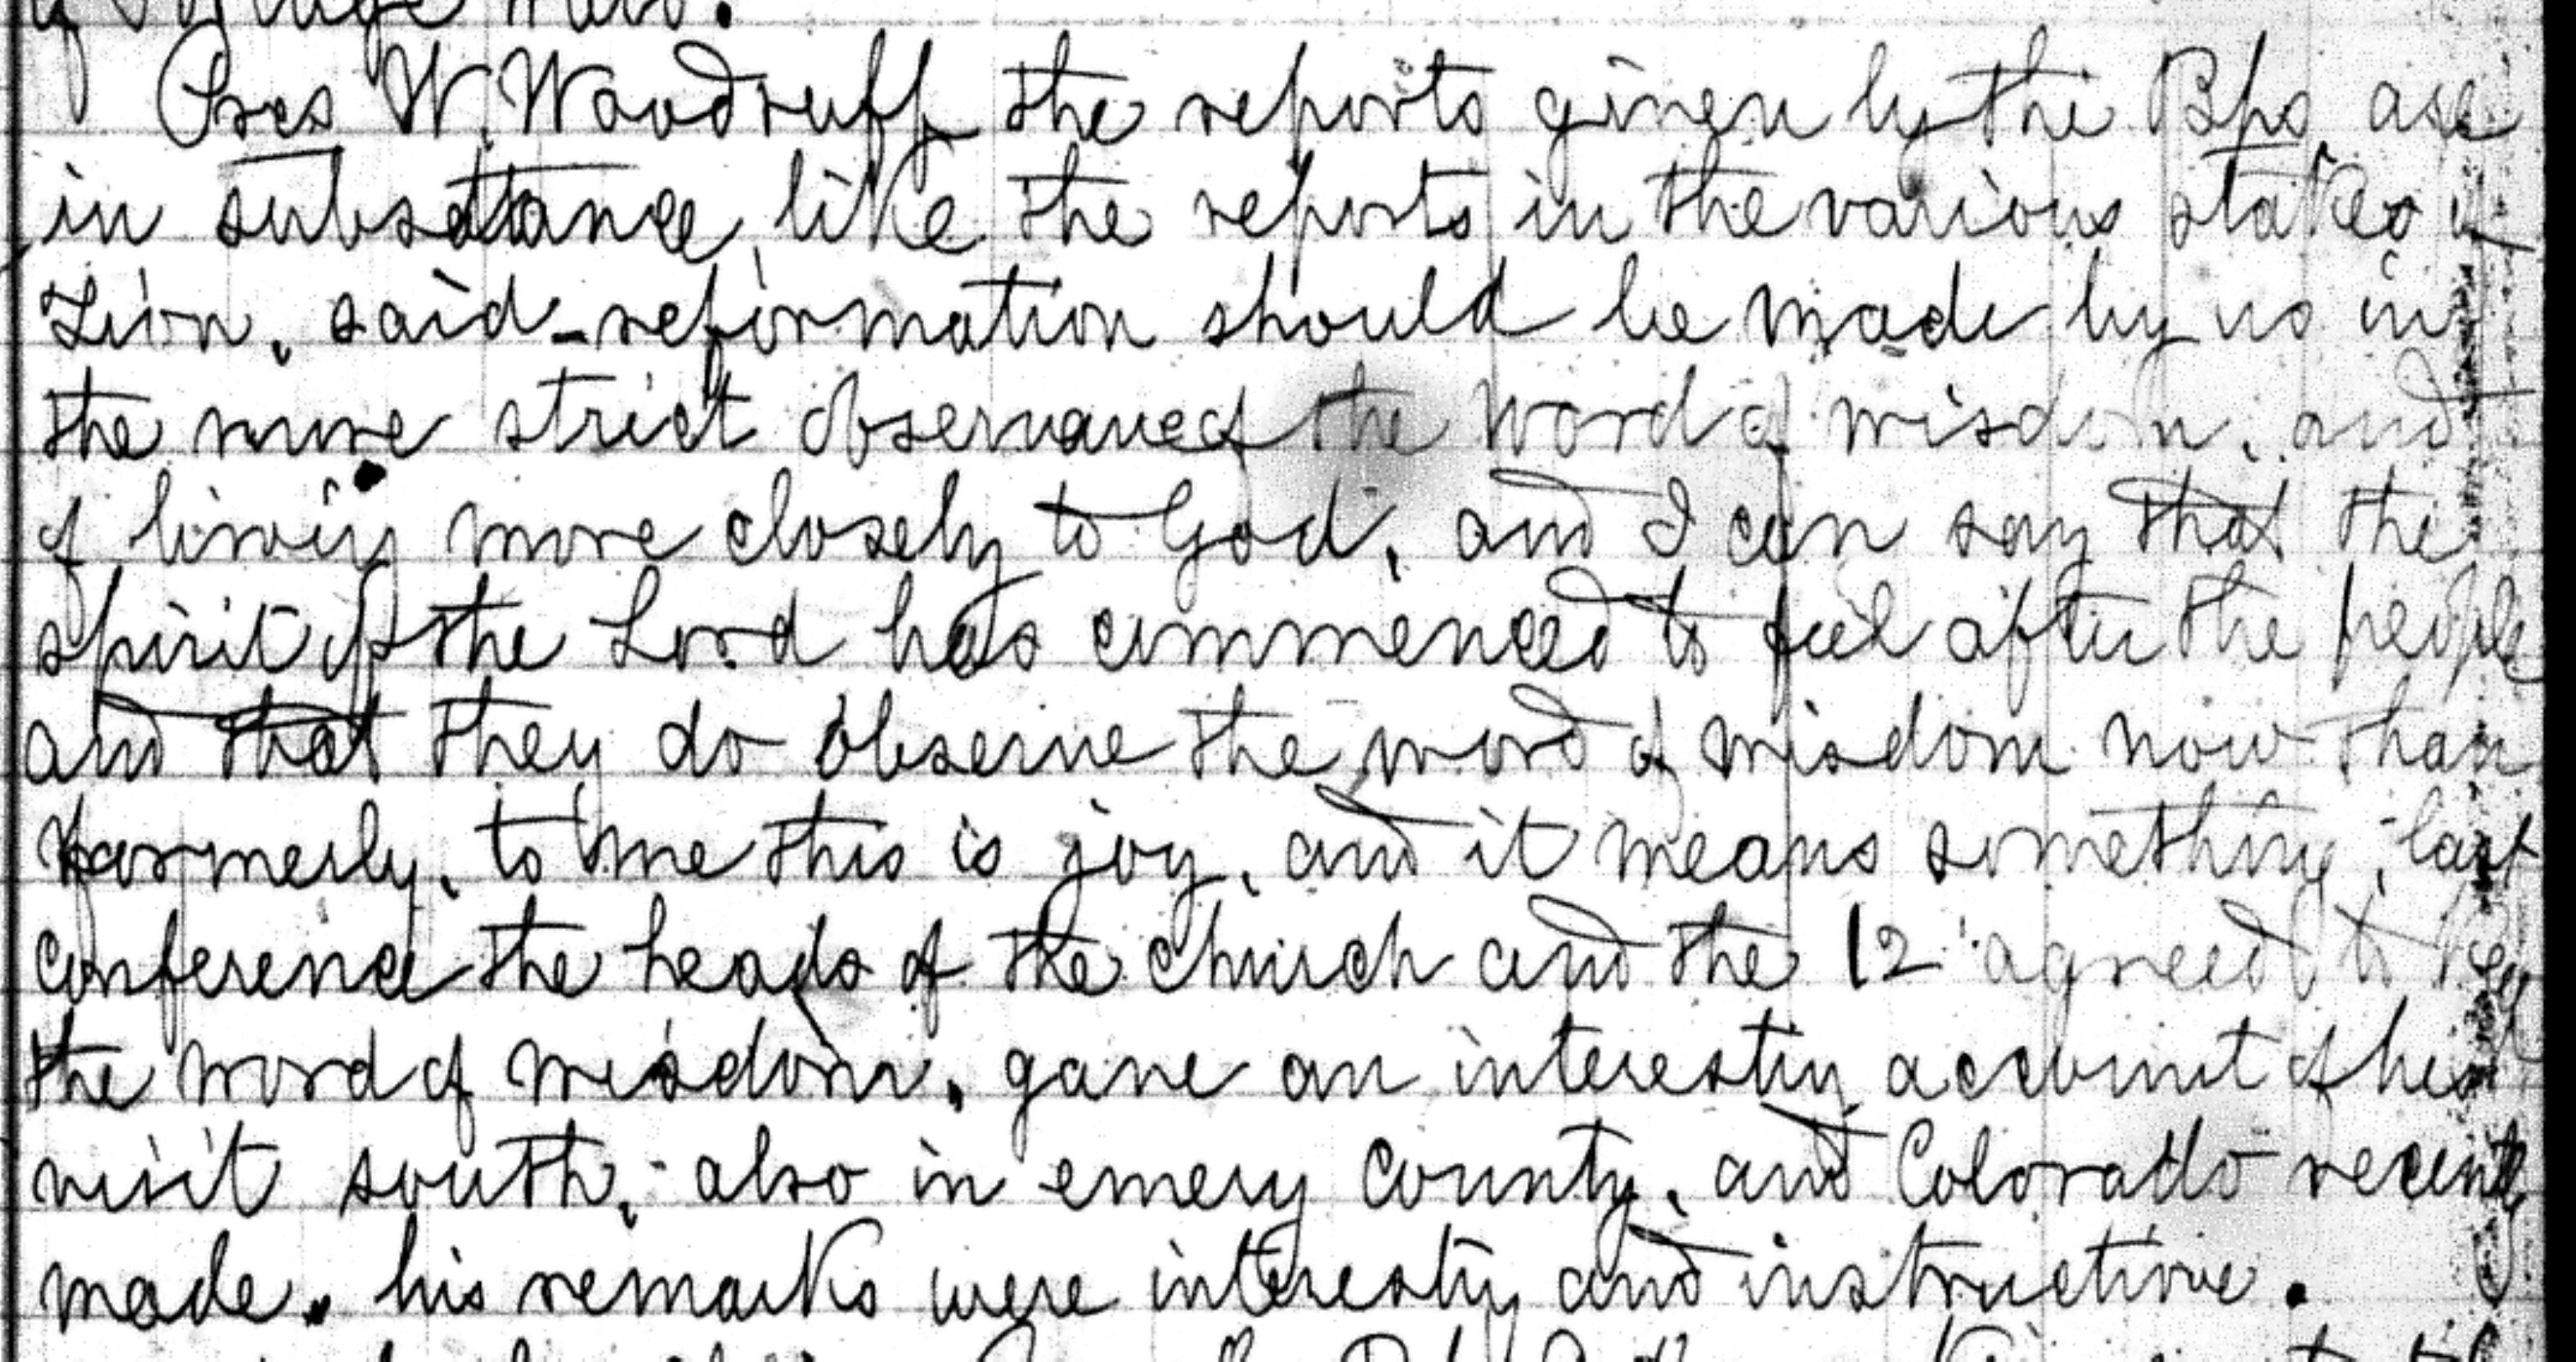 Pres W. Woodruff the reports given by the Bps are
in substance like the reports in the various stakes of
Zion, said - reformation should be made by us in
the more strict observance of the word of wisdom, and
of living more closely to God, and I can say that the
spirit of the Lord has commenced to feel after the people
and that they do observe the word of wisdom now than
formerly, to me this is joy, and it means something, last
conference the heads of the church and the 12 agreed to keep
the word of wisdom, gave an interestin account of his
visit south, also in emery county, and Colorado recently
made. his remarks were interesting and instructive.